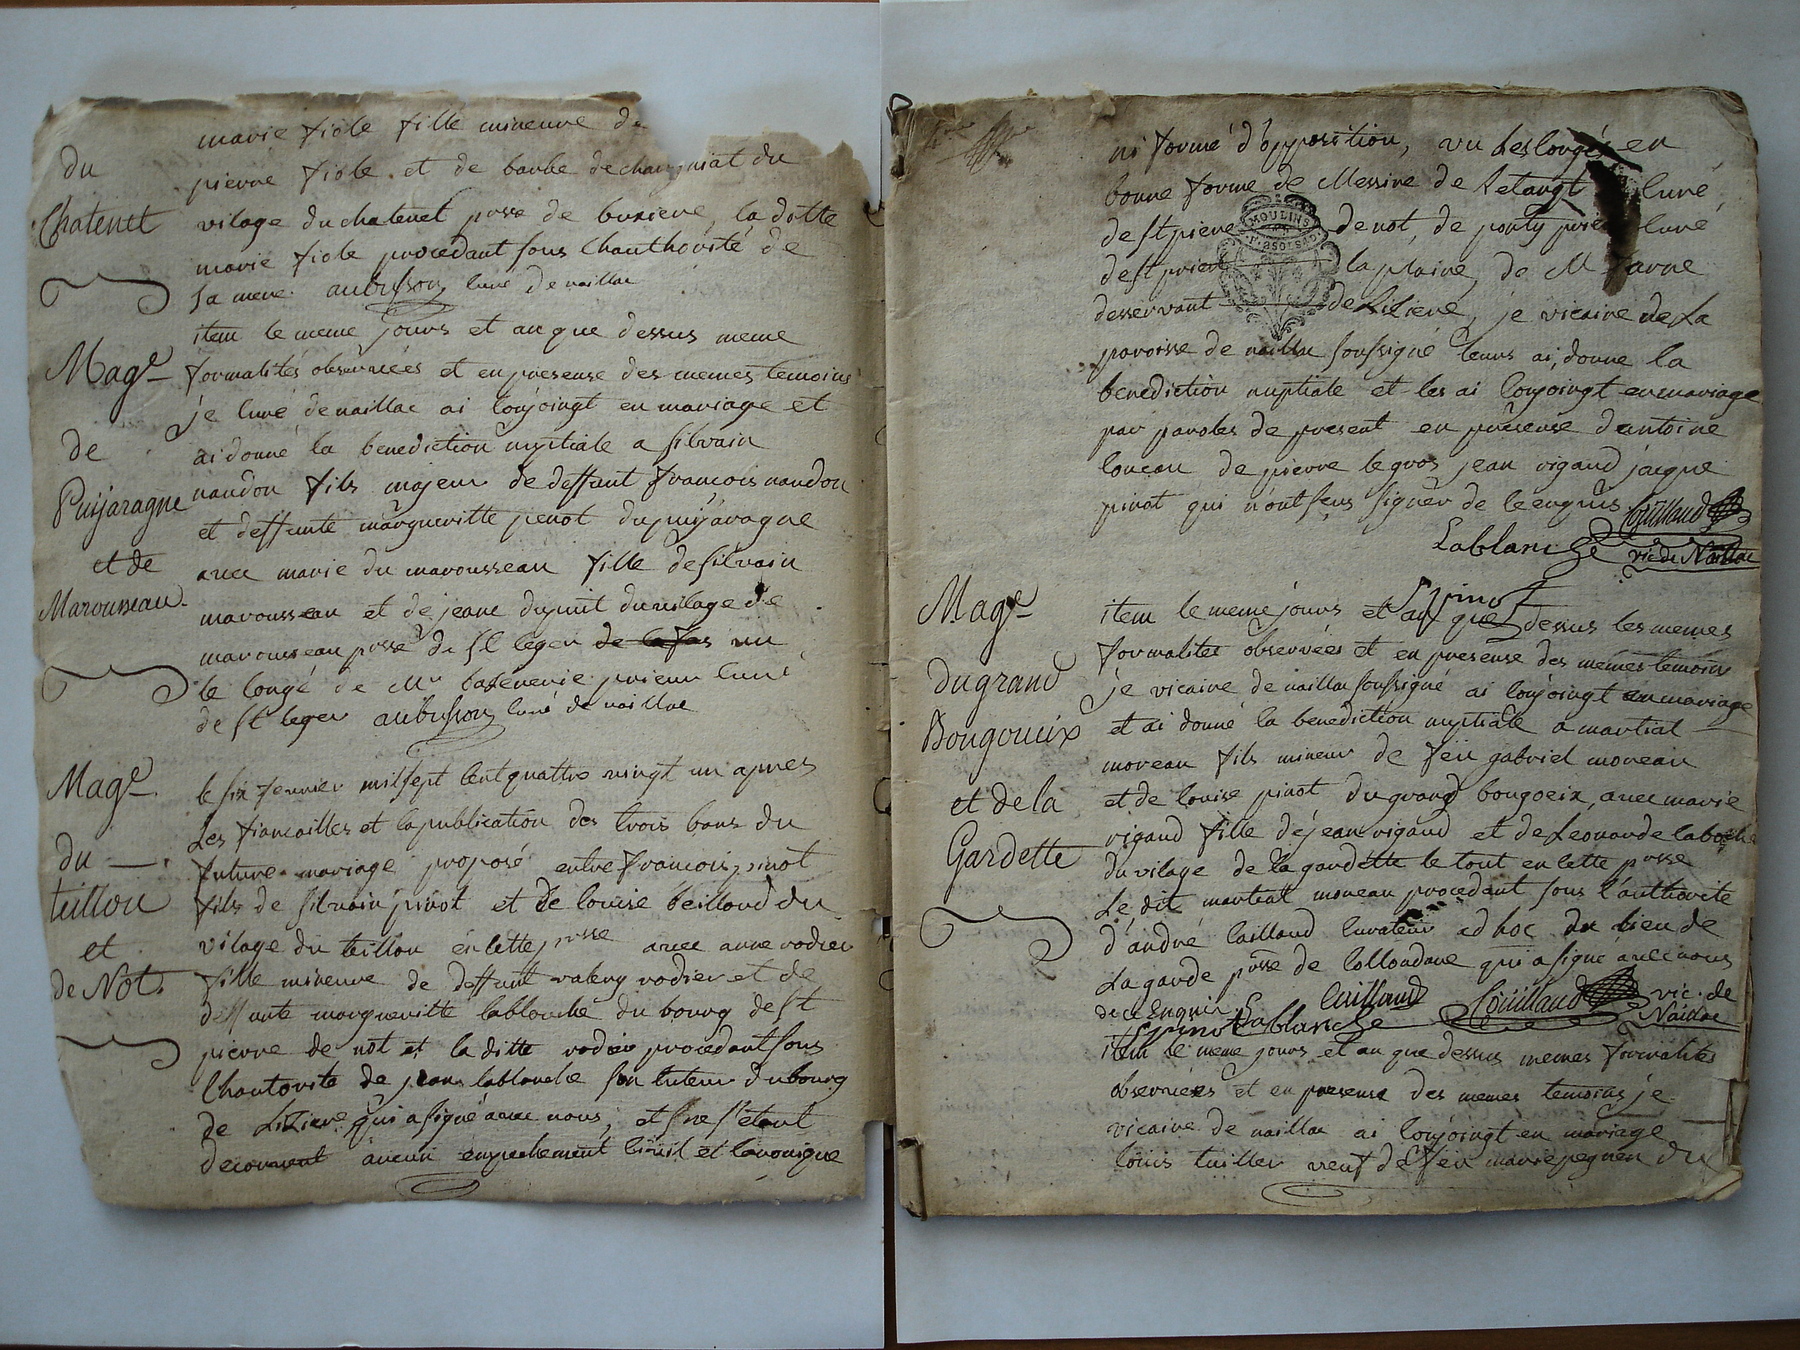 marie fiole fille mineure de
du
pierre fiole et de barbe
du
Chatenet
vilage du chatenet psse de buxiere, la ditte
marie fiole procedant sous lhauthorité de
sa mere. aubusson curé de naillac
item le meme jours et an que dessus meme
Mage
formalités observées et en presense des memes temoins
je curé de naillac ai conjoingt en mariage et
de
ai donné la benediction nuptiale a silvain
Puyjaragne
naudon fils majeur de deffunt francois naudon
et deffunte margueritte penot du puyjaragne
et de
avec marie du marousseau fille de silvain
Marousseau
marousseau et de jeane dupuit du vilage de
marousseau psse de st leger de la fas vu
le congé de Mr prieur curé
de st leger aubusson curé de naillac
Mage
le six fevrier mil sept cent quattre vingt un apres
Les fiancailles et la publication des trois bans du
du
future mariage proposé entre francois pinot
teillou
fils de silvain pinot et de louise beillond du
et
vilage du teillou en cette psse avec anne rodier
de Not
fille mineure de deffunt valery rodier et de
deffunte margueritte lablanche du bourg de st
pierre de not et la ditte rodier procedant sous
lhautorite de jean lablanche son tuteur du bourg
de Liziere qui a signé avec nous, et ne s'etant
decouvert aucun empechement civil et canonique
ni formé d'opposition, vu les congés en
bonne forme de Messire de Letangt curé
de st piere de not, de ponty curé
MOULINS
de st priest la plaine, de M
desservant de Liziere, je vicaire de La
paroisse de naillac soussigné leurs ai, donne la
benediction nuptiale et les ai conjoingt en mariage
par paroles de present en presense dantoine
loucau de pierre legros jean rigaud jacque
pinot qui n'ont sçus signer de ce enquis Coüilland
Lablanche vic de Naillac
pinot
Mage
item le meme jours et an que dessus les memes
formalites observées et en presense des memes temoins
du grand
je vicaire de naillac soussigné ai conjoingt en mariage
Bougoueix
et ai donné la benediction nuptiale a martial
moreau fils mineur de feu gabriel moreau
et de la
et de louise pinot du grand bougoeix, avec marie
Gardette
rigaud fille de jean rigaud et de Leonarde laboche
du vilage de la gardette le tout en cette psse
Le dit martial moreau procedant sous l'authorite
d'andré caillaud curateur ad hoc du lieu de
La garde psse de collondane qui a signé avec nous
de ce Enquis Caillaud Coüilland vic. de
pinot Lablanche Naillac
item le meme jours et an que dessus memes formalités
observées et en presense des memes temoins je
vicaire de naillac ai conjoingt en mariage
louis tuiller veuf de feu marie pegneu du